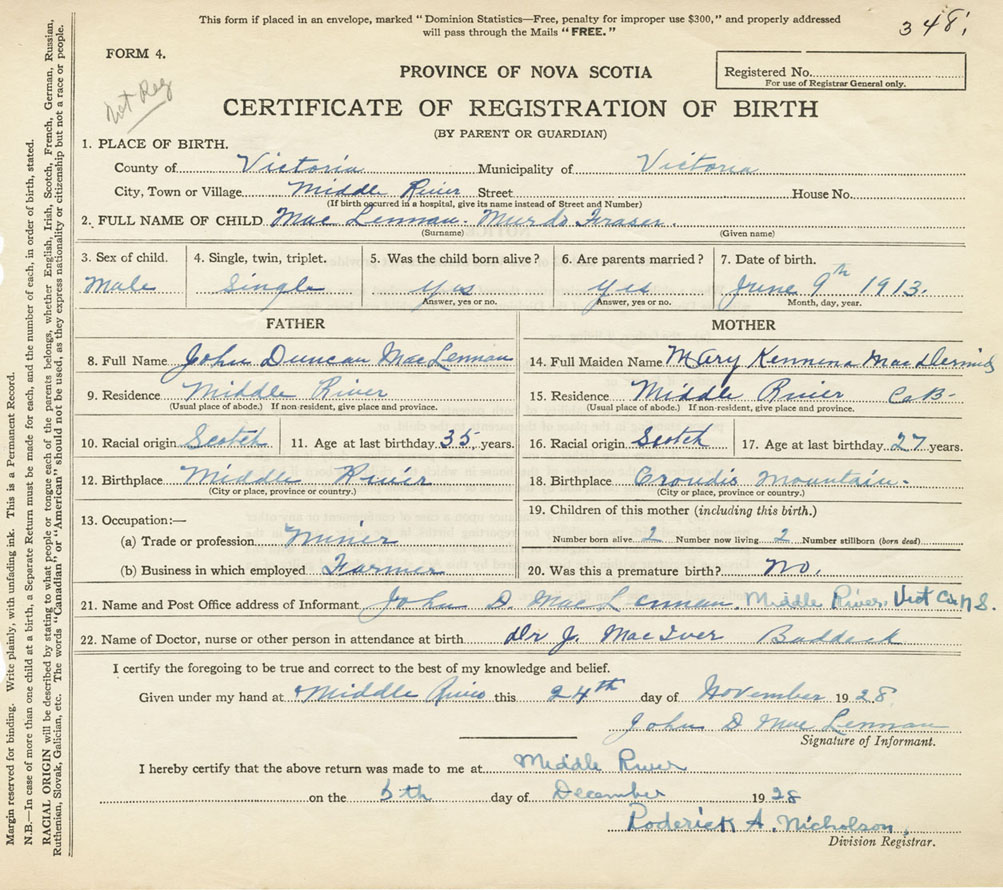 This form if placed in an envelope, marked "Dominion Statistics—Free, penalty for improper use $300," and properly addressed
will pass through the Mails "FREE."
348.
FORM 4.
Not Reg
PROVINCE OF NOVA SCOTIA
Registered No.
For use of Registrar General only.
CERTIFICATE OF REGISTRATION OF BIRTH
(BY PARENT OR GUARDIAN)
1. PLACE OF BIRTH.
County of Victoria Municipality of Victoria
City, Town or Village Middle River Street House No.
(If birth occurred in a hospital, give its name instead of Street and Number)
2. FULL NAME OF CHILD Mac Lennan. Murdo Fraser.
(Surname) (Given name)
3. Sex of child. 4. Single, twin, triplet. 5. Was the child born alive? 6. Are parents married? 7. Date of birth.
Male Single Yes Yes June 9th 1913.
Answer, yes or no. Answer, yes or no. Month, day, year.
FATHER MOTHER
8. Full Name John Duncan MacLennan 14. Full Maiden Name Mary Kennena MacDermid
9. Residence Middle River 15. Residence Middle River C.B.
(Usual place of abode.) If non-resident, give place and province. (Usual place of abode.) If non-resident, give place and province.
10. Racial origin Scotch 11. Age at last birthday 35 years. 16. Racial origin Scotch 17. Age at last birthday 27 years.
12. Birthplace Middle River 18. Birthplace Crowdis Mountain.
(City or place, province or country.) (City or place, province or country.)
13. Occupation:— 19. Children of this mother (including this birth.)
(a) Trade or profession Miner Number born alive 2 Number now living 2 Number stillborn (born dead)
(b) Business in which employed Farmer 20. Was this a premature birth? No.
21. Name and Post Office address of Informant John D. MacLennan. Middle River, Vict Co N.S.
22. Name of Doctor, nurse or other person in attendance at birth Dr J. MacIver Baddeck
I certify the foregoing to be true and correct to the best of my knowledge and belief.
Given under my hand at Middle River this 24th day of November 1928
John D MacLennan
Signature of Informant.
I hereby certify that the above return was made to me at Middle River
on the 5th day of December 1928
Roderick A. Nicholson.
Division Registrar.
Margin reserved for binding. Write plainly, with unfading ink. This is a Permanent Record.
N.B.—In case of more than one child at a birth, a Separate Return must be made for each, and the number of each, in order of birth, stated.
RACIAL ORIGIN will be described by stating to what people or tongue each of the parents belongs, whether English, Irish, Scotch, French, German, Russian,
Ruthenian, Slovak, Galician, etc. The words "Canadian" or "American" should not be used, as they express nationality or citizenship but not a race or people.